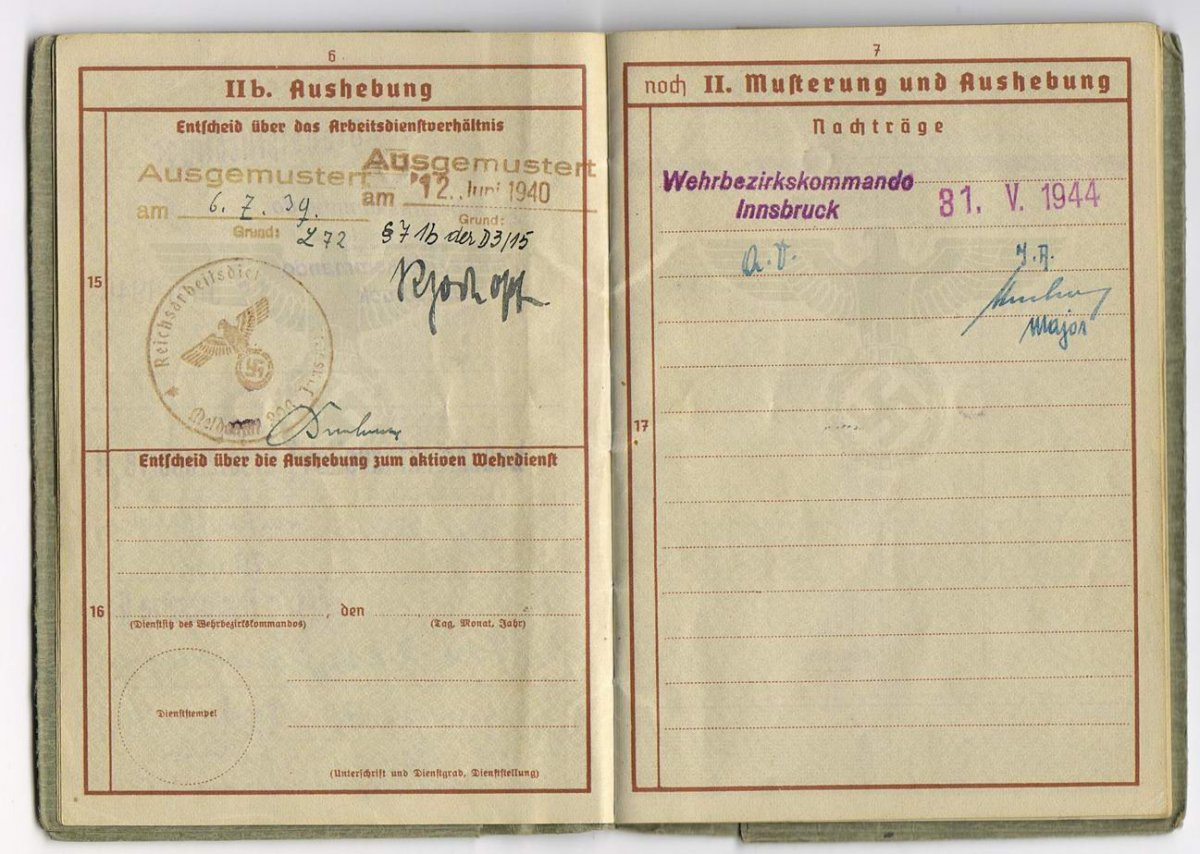 6
IIb. Aushebung
15
Entscheid über das Arbeitsdienstverhältnis
Ausgemustert
am 6. 7. 39.
Grund:
L 72
Ausgemustert
am 12. Juni 1940
Grund:
§ 7 1b der D3/15
Reichsarbeitsdienst
Entscheid über die Aushebung zum aktiven Wehrdienst
16
, den
(Dienstsitz des Wehrbezirkskommandos) (Tag, Monat, Jahr)
Dienststempel
(Unterschrift und Dienstgrad, Dienststellung)
7
noch II. Musterung und Aushebung
17
Nachträge
Wehrbezirkskommando
Innsbruck
31. V. 1944
J. A.
Major